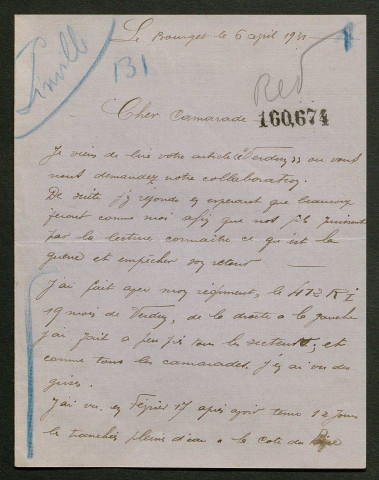 Le Bourget le 6 april 19
Linville
131
Red
Cher Camarade 160,674
Je viens de lire votre article "Verdun" ou vous
nous demandez notre collaboration.
De suite j'y réponds en esperant que beaucoup
feront comme moi afin que nos fils puissent
par la lecture connaitre ce qu'est la
guerre et empecher son retour
J'ai fait avec mon régiment, le 412 R I
19 mois de Verdun, de la droite a la gauche
j'ai fait a peu près tous les secteurs, et
comme tous les camarades j'y ai vu des
J'ai vu en Février 17 après avoir tenu 12 jours
les tranchées pleins d'eau a la cote du